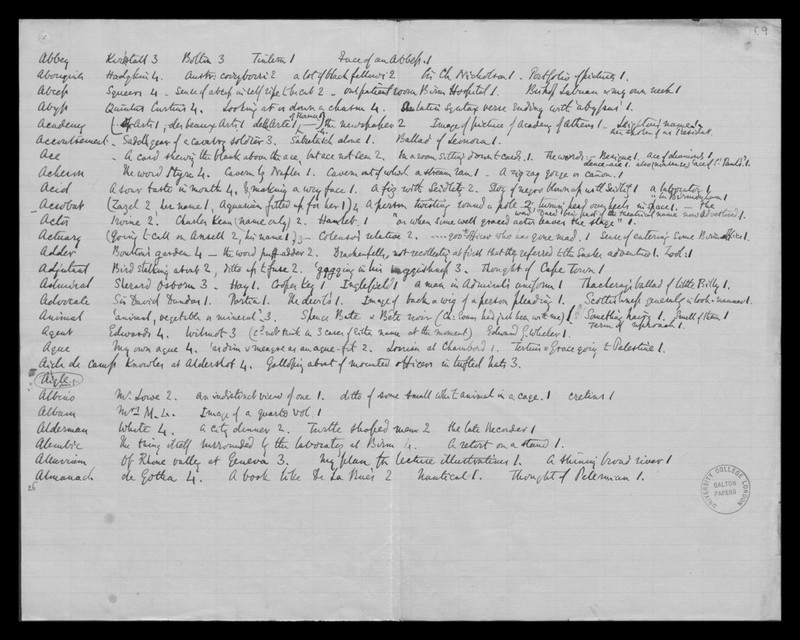 59
Abbey Kirkstall 3 Bolton 3 Tintern 1 Face of an Abbess. 1
Aborigines Hodgkin 4. Austr. corrybori 2 a lot of black fellows 2 Sir Ch. Nicholson 1. Portfolio of pictures 1.
Abcess Squeers 4 - Sense of abcess in self ripe to be cut 2 - outpatient room Birm Hospital 1. Bishop &
Abyss Quintus Curtius 4. Looking at or down a chasm 4. Latin syntax verse ending with 'abyssus' 1.
Academy des beaux Arts 1 the newspaper 2 Image of picture of Academy of Athens 1 -
Accoutrement - Saddlegear of a cavalry soldier 3. Sabretatch alone 1. Ballad of Leonora 1.
Ace - A card shewing the blank about the ace, but ace not seen 2. In a room sitting down to cards. 1. The words - ace of diamonds 1
Acheron The word Styx 4. Cavern by Naples 1. Cavern out of which a stream ran 1 - A zigzag gorge or cañon. 1
Acid A sour taste in mouth 4. making a wry face 1. A fig with Seidlitz 2. a laboratory 1 " in Birmingham 1
Acrobat (Zazel 2 her name 1, Aquarium fitted up for her 1) 4 A person twisting round a pole 2, turning head over heels in space 1. - The
Actor Irvine 2. Charles Kean (name only) 2. Hamlet. 1 "or when some well graced actor leaves the stage" 1.
Actuary (Going to call on Ansell 2, his name 1) 3 - Colenso's relative 2. Sense of entering some Birm office 1.
Adder Boulton's garden 4 - the word puff-adder 2. Drakenfells, not recollecting at first that they referred to the Snake 1. Zool: 1
Adjutant Bird stalking about 2, ditto up to fuse 2. 3. Thought of Cape Town 1
Admiral Sherard Osborn 3 - Hay 1. Cooper Key 1 Inglefield 1 a man in Admiral's uniform 1 Thackeray's ballad of little Billy 1.
Advocate Sir David Dundas 1. Portia 1. The devil's 1. Image of back & wig of a person pleading 1. Scottish
Animal animal, vegetable or mineral 3. Spence Bate & Bête noire Something hairy 1. Smell of them 1
Agent Edwards 4. Wilmot 3 (could not think in 3 cases of his name at the moment) Edward G. Wheler 1. Term of approach 1.
Ague My own ague 4. as dim & meagre as an ague-fit 2. Lorrain at Chambord 1. Tertius & Grace going to Palestine 1.
Aide de camp Knowles at Aldershot 4. Galloping about of mounted officers in tufted hats 3.
Aigle.
Albino Mr Lowe 2. an indistinct view of one 1. ditto of some small white animal in a cage. 1 cretins 1
Album Mrs M. 4. Image of a quarto vol. 1
Alderman White 4. a city dinner 2. Turtle shaped man 2 the late Recorder 1
Alembic The thing itself surrounded by the laboratory at Birm 4. A retort on a stand 1.
Alluvium Of Rhone valley at Geneva 3. My plan for lecture illustrations 1. A shining broad river 1
Almanach de Gotha 4. A book like De La Rue's 2 Nautical 1. Thought of Peterman 1.
26
UNIVERSITY COLLEGE LONDON
GALTON PAPERS